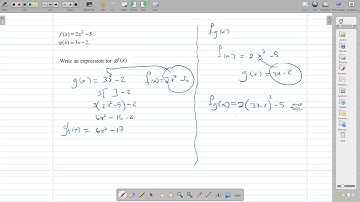 f(x) = 2x² -5
g(x) = 3x - 2
Write an expression for gf(x)
g(x) = 3x - 2 f(x) = 2x² - 5
3[ ] - 2
3(2x²-5) - 2
6x² - 15 - 2
gf(x) = 6x² - 17
fg(x)
f(x) = 2x² - 5
g(x) = 3x - 2
fg(x) = 2(3x-2)² - 5